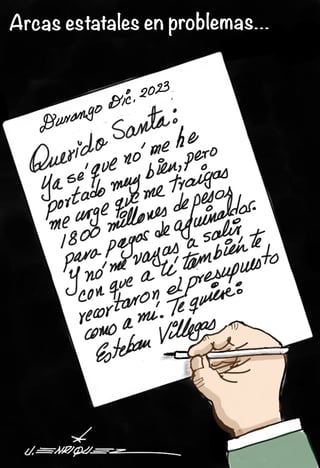 Arcas estatales en problemas...
Durango Dic. 2023
Querido Santa:
Ya se' que no' me he
portado muy bien, pero
me urge que me traigas
1800 millones de pesos
para pagos de aguinaldos.
Y no' me vayas a salir
con que a tí también te
recortaron el presupuesto
como a mí. Te quiere:
Esteban Villegas